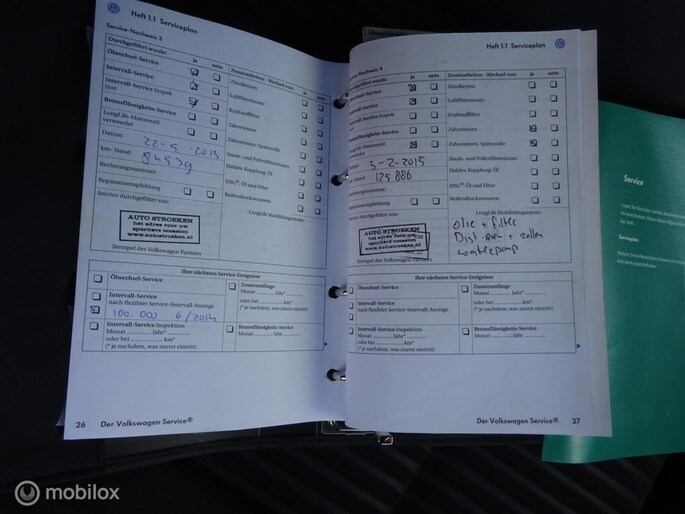 Heft 1.1 Serviceplan
Service-Nachweis 3
Durchgeführt wurde: ja nein
Ölwechsel-Service
Intervall-Service
Intervall-Service Inspektion
Bremsflüssigkeits-Service
LongLife-Motorenöl verwendet
Datum: 22-5-2013
km-Stand:
Rechnungsnummer:
Reparaturempfehlung
Service durchgeführt von:
AUTO STROEKEN
het adres voor uw
sportieve occasion
www.autostroeken.nl
Stempel des Volkswagen Partners
Zusatzarbeiten - Wechsel von: ja nein
Zündkerzen
Luftfiltereinsatz
Kraftstofffilter
Zahnriemen
Zahnriemen-Spannrolle
Staub- und Pollenfiltereinsatz
Haldex-Kupplung: Öl
DSG®: Öl und Filter
Reifendruckmesswerte
LongLife Mobilitätsgarantie
Ihre nächsten Service-Ereignisse
Ölwechsel-Service
Intervall-Service
nach flexibler Service-Intervall-Anzeige
100.000 6/2014
Intervall-Service Inspektion
Monat Jahr*
oder bei km*
(* je nachdem, was zuerst eintritt)
Zusatzumfänge
Monat Jahr*
oder bei km*
(* je nachdem, was zuerst eintritt)
Bremsflüssigkeits-Service
Monat Jahr
26 Der Volkswagen Service®
Heft 1.1 Serviceplan
Service-Nachweis 4
Durchgeführt wurde: ja nein
Datum: 3-2-2015
125.886
Service durchgeführt von:
AUTO STROEKEN
het adres voor uw
sportieve occasion
www.autostroeken.nl
Stempel des Volkswagen Partners
Zusatzarbeiten - Wechsel von: ja nein
Zündkerzen
Luftfiltereinsatz
Kraftstofffilter
Zahnriemen
Zahnriemen-Spannrolle
Staub- und Pollenfiltereinsatz
Haldex-Kupplung: Öl
DSG®: Öl und Filter
Reifendruckmesswerte
LongLife Mobilitätsgarantie
olie + filter
Dist. riem + rollen
waterpomp
Ihre nächsten Service-Ereignisse
Ölwechsel-Service
Intervall-Service
nach flexibler Service-Intervall-Anzeige
Intervall-Service Inspektion
Monat Jahr*
oder bei km*
(* je nachdem, was zuerst eintritt)
Zusatzumfänge
Monat Jahr*
oder bei km*
(* je nachdem, was zuerst eintritt)
Bremsflüssigkeits-Service
Monat Jahr
Der Volkswagen Service® 27
Service
Serviceplan
mobilox